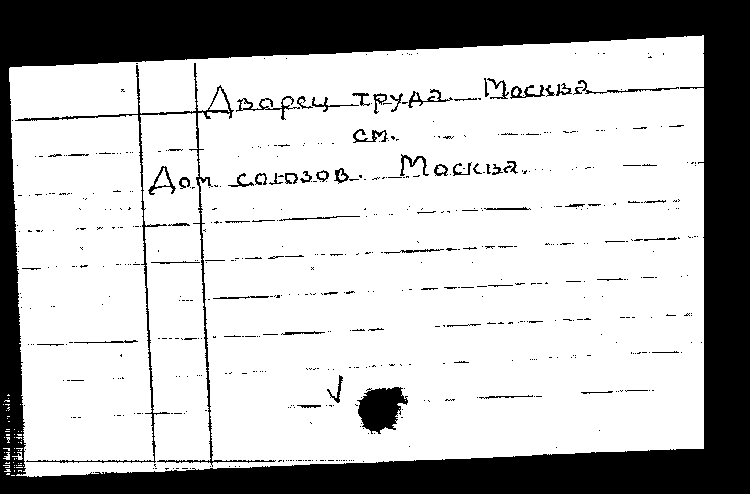 Дворец труда. Москва
см.
Дом союзов. Москва.